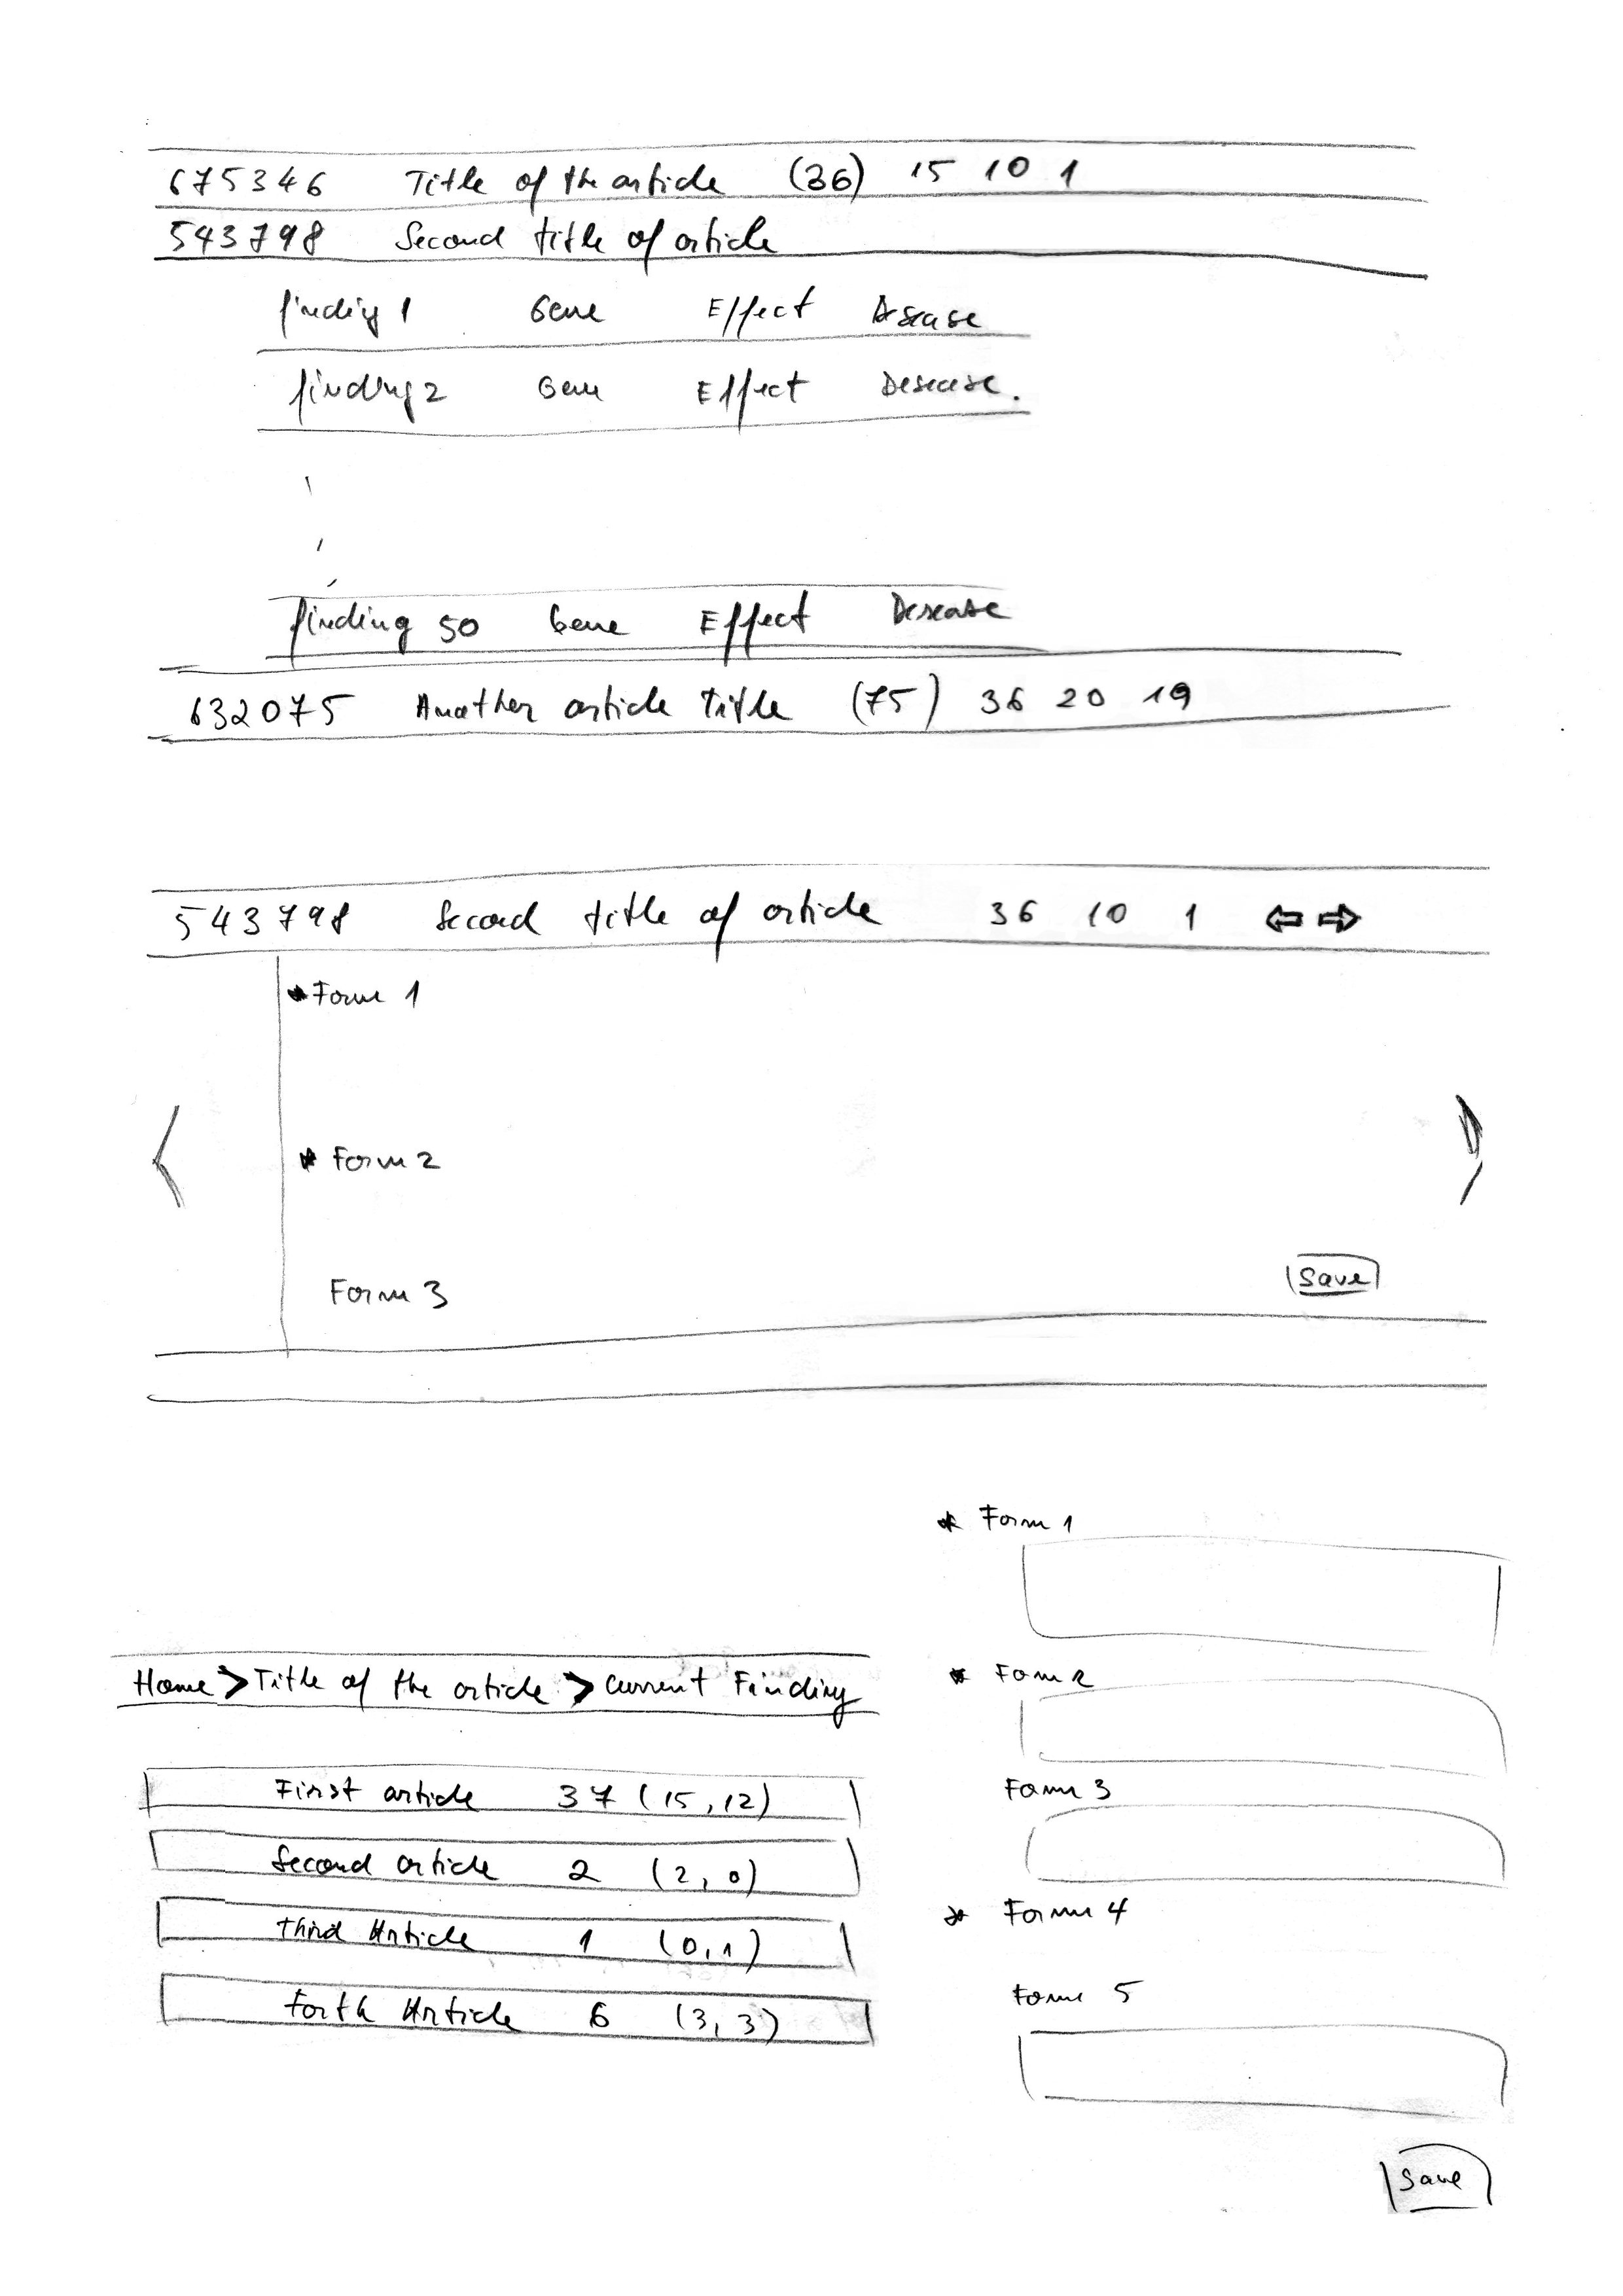 675346 Title of the article (36) 15 10 1
543798 Second title of article
finding 1 Gene Effect Disease
finding 2 Gene Effect Desease.
finding 50 Gene Effect Desease
632075 Another article Title (75) 36 20 19
543798 Second title of article 36 10 1 ⇦ ⇨
* Form 1
* Form 2
Form 3
Save
Home > Title of the article > Current Finding
First article 37 (15, 12)
Second article 2 (2, 0)
third Article 1 (0, 1)
Forth Article 6 (3, 3)
* Form 1
* Form 2
Form 3
* Form 4
Form 5
Save